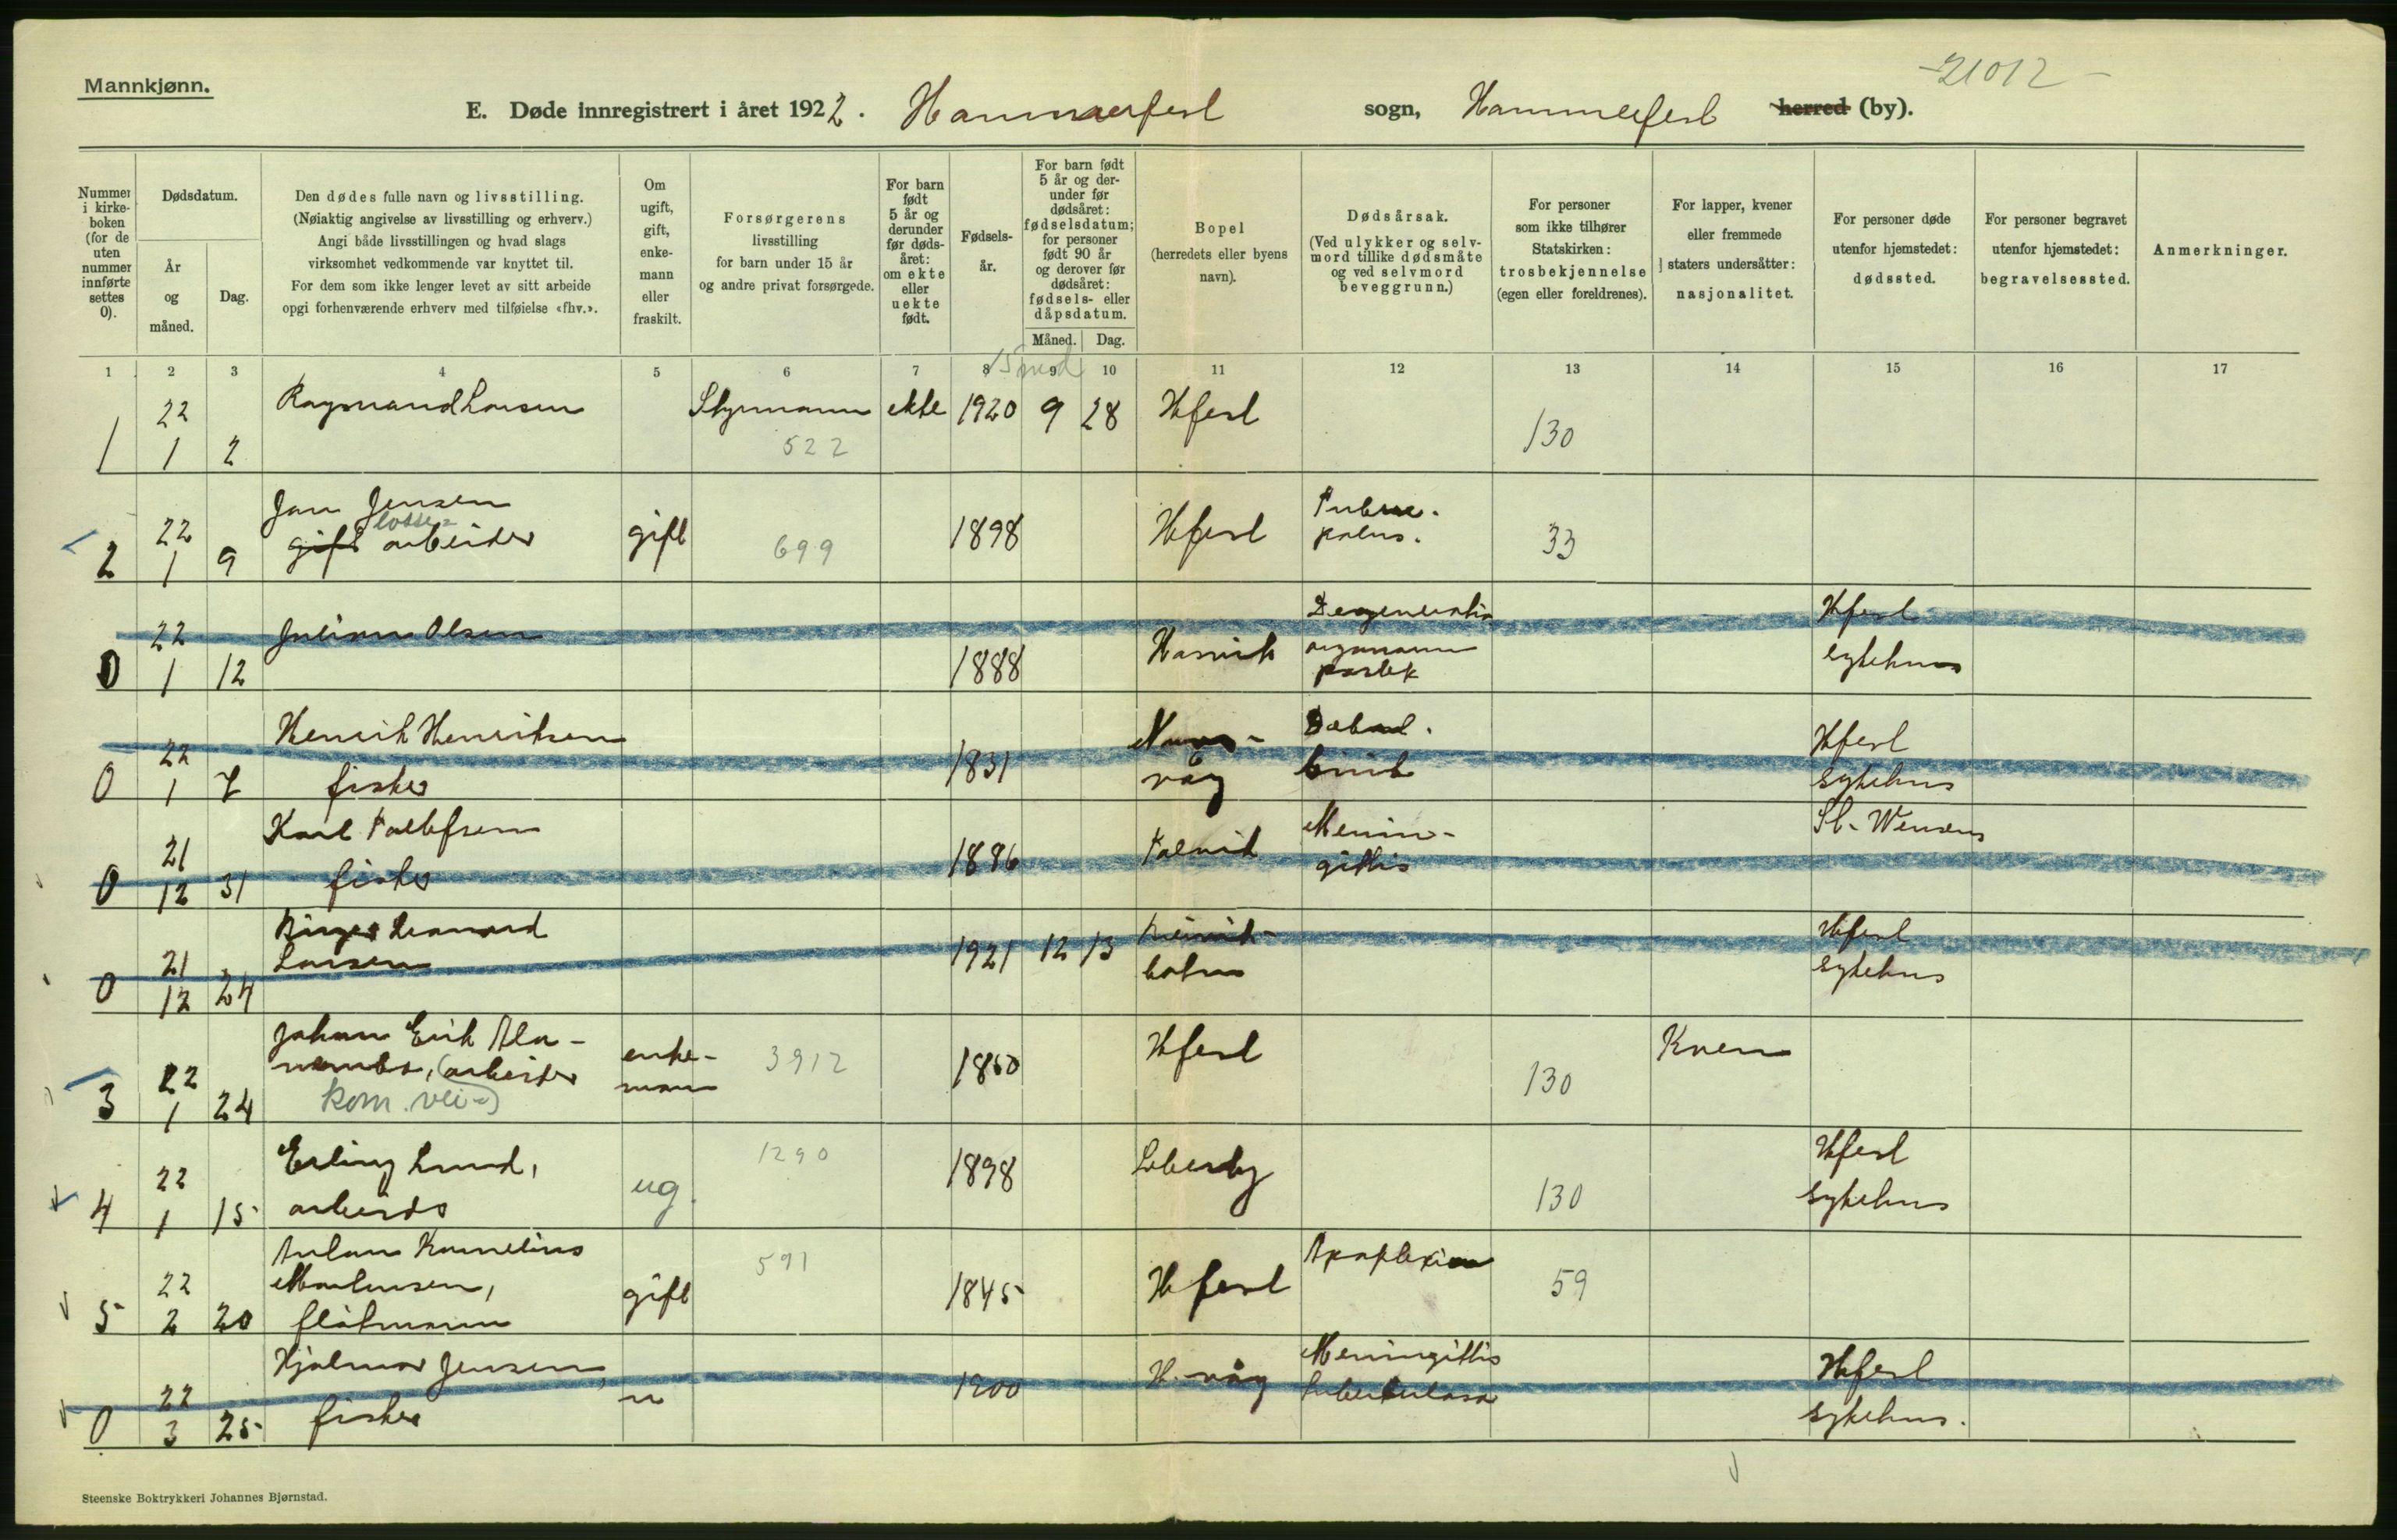 Mannkjønn.
-21012-
E. Døde innregistrert i året 1922. Hammerfest sogn, Hammerfest herred (by).
Nummer i kirke- boken (for de uten nummer innførte settes 0).
Dødsdatum.
År og måned.
Dag.
Den dødes fulle navn og livsstilling.
(Nøiaktig angivelse av livsstilling og erhverv.)
Angi både livsstillingen og hvad slags
virksomhet vedkommende var knyttet til.
For dem som ikke lenger levet av sitt arbeide
opgi forhenværende erhverv med tilføielse «fhv.».
Om ugift, gift, enke- mann eller fraskilt.
Forsørgerens
livsstilling
for barn under 15 år
og andre privat forsørgede.
For barn født 5 år og derunder før døds- året: om ekte eller uekte født.
Fødsels- år.
For barn født 5 år og der- under før dødsåret: fødselsdatum; for personer født 90 år og derover før dødsåret: fødsels- eller dåpsdatum.
Måned. Dag.
Bopel
(herredets eller byens
navn).
Dødsårsak.
(Ved ulykker og selv-
mord tillike dødsmåte
og ved selvmord
beveggrunn.)
For personer
som ikke tilhører
Statskirken:
trosbekjennelse
(egen eller foreldrenes).
For lapper, kvener
eller fremmede
staters undersåtter:
nasjonalitet.
For personer døde
utenfor hjemstedet:
dødssted.
For personer begravet
utenfor hjemstedet:
begravelsessted.
Anmerkninger.
1 2 3 4 5 6 7 8 9 10 11 12 13 14 15 16 17
15 md
1 22 1 2 Raymand Larsen Styrmann 522 ekte 1920 9 28 Hfest 130
2 22 1 9 Jan Jensen
gift losse= arbeider gift 699 1898 Hfest Tuberc.
pulm. 33
0 22 1 12 Julian Olsen 1888 Hasvik Degeneratio
organum
Hfest
sykehus
0 22 1 7 Henrik Henriksen
fisker 1831
våg Hfest
sykehus
0 21 12 31 Karl Tollefsen
fisker 1896 Talvik Menin-
gittis St.
0 21 12 24 Birger Leonard
Larsen 1921 12 13
botn Hfest
sykehus
3 22 1 24 Johan Erik Ala-
arbeider
kom. vei-) enke-
mann 3912 1860 Hfest 130 Kven
4 22 1 15 Erling Lund,
arbeider ug. 1290 1898 Lebesby 130 Hfest
sykehus
5 22 2 20 Anton Kornelius
Martinsen,
flåtmann gift 591 1845 Hfest Apoplexia 59
0 22 3 25 Hjalmar Jensen,
fisker u 1900 H. våg Meningittis
tuberkulosa Hfest
sykehus.
Steenske Boktrykkeri Johannes Bjørnstad.